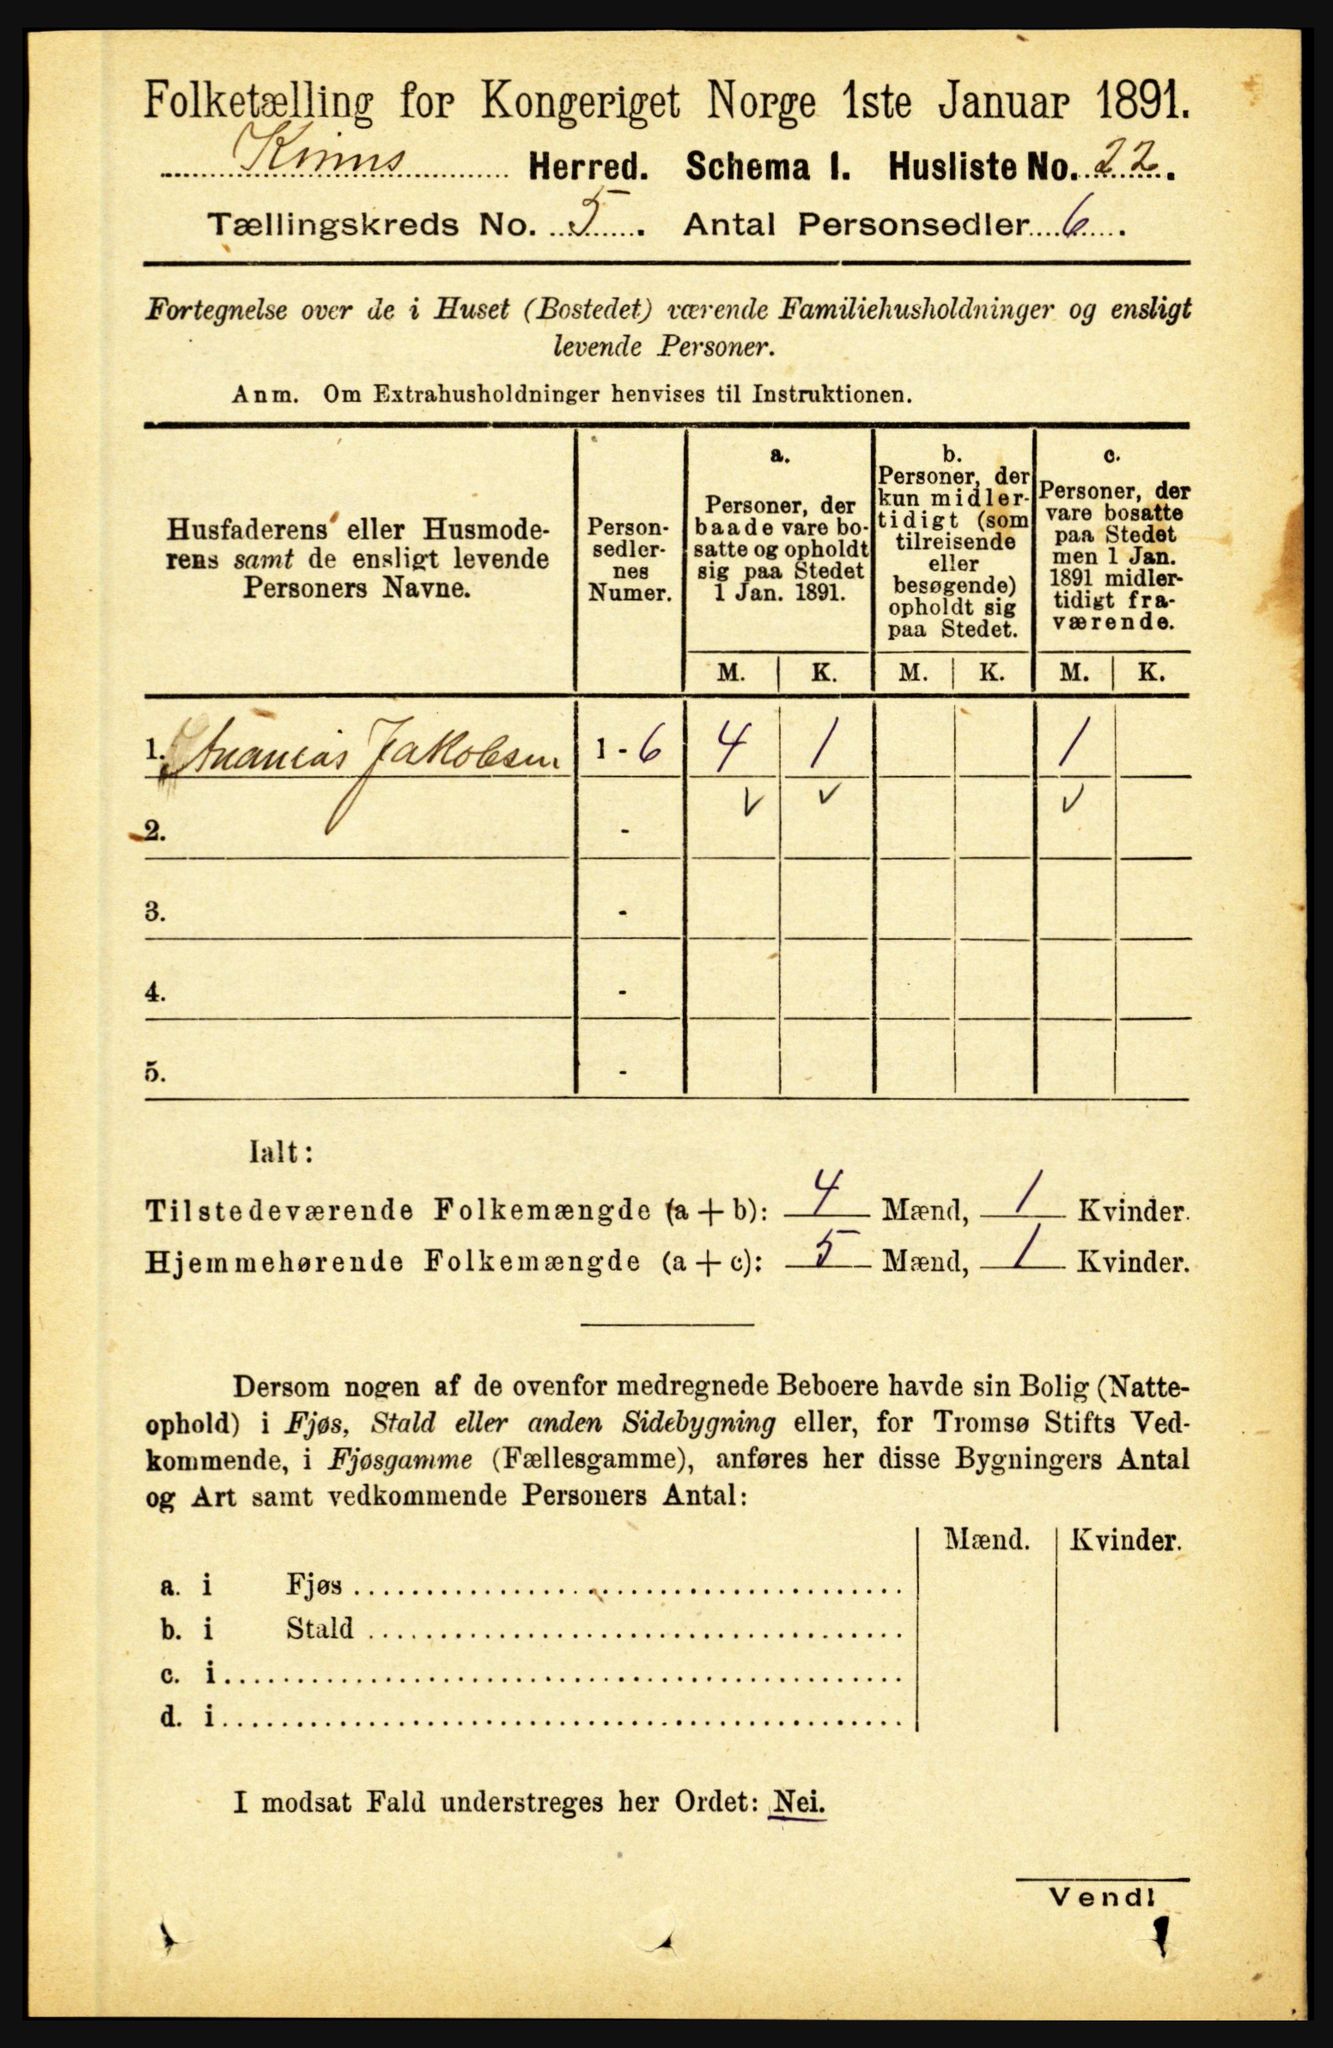 Folketælling for Kongeriget Norge 1ste Januar 1891.
Kinns Herred. Schema I. Husliste No. 22.
Tællingskreds No. 5. Antal Personsedler 6.
Fortegnelse over de i Huset (Bostedet) værende Familiehusholdninger og ensligt
levende Personer.
Anm. Om Extrahusholdninger henvises til Instruktionen.
Husfaderens eller Husmode-
rens samt de ensligt levende
Personers Navne.
Person-
sedler-
nes
Numer.
a.
Personer, der
baade vare bo-
satte og opholdt
sig paa Stedet
1 Jan. 1891.
b.
Personer, der
kun midler-
tidigt (som
tilreisende
eller
besøgende)
opholdt sig
paa Stedet.
c.
Personer, der
vare bosatte
paa Stedet
men 1 Jan.
1891 midler-
tidigt fra-
værende.
M. K. M. K. M. K.
1. Ananias Jakobsen 1 - 6 4 1 1
2. - √ √ √
3. -
4. -
5. -
Ialt:
Tilstedeværende Folkemængde (a + b): 4 Mænd, 1 Kvinder.
Hjemmehørende Folkemængde (a + c): 5 Mænd, 1 Kvinder.
Dersom nogen af de ovenfor medregnede Beboere havde sin Bolig (Natte-
ophold) i Fjøs, Stald eller anden Sidebygning eller, for Tromsø Stifts Ved-
kommende, i Fjøsgamme (Fællesgamme), anføres her disse Bygningers Antal
og Art samt vedkommende Personers Antal:
Mænd. Kvinder.
a. i Fjøs
b. i Stald
c. i
d. i
I modsat Fald understreges her Ordet: Nei.
Vend!